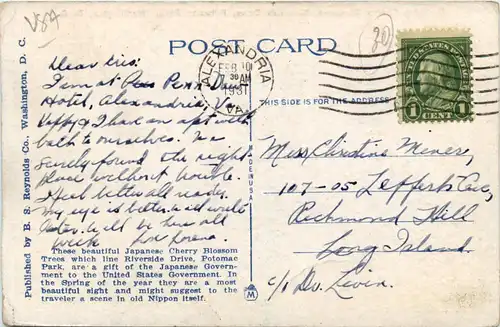 USA
POST CARD
20
ALEXANDRIA
FEB 10
7 30 AM
1931
VA.
UNITED STATES POSTAGE
1 CENT 1
THIS SIDE IS FOR THE ADDRESS
Published by B. S. Reynolds Co., Washington, D. C.
MADE IN USA
Dear Cris:
I am at Penn
Hotel, Alexandria, Va.
& I have an apt with
bath to ourselves. We
surely found the right
place without trouble.
Feel better all ready.
My eye is better. will write
later. Will be here all
week
These beautiful Japanese Cherry Blossom
Trees which line Riverside Drive, Potomac
Park, are a gift of the Japanese Govern-
ment to the United States Government. In
the Spring of the year they are a most
beautiful sight and might suggest to the
traveler a scene in old Nippon itself.
M
Miss Christine Meyer,
107-05 Lefferts Ave,
Richmond Hill
Long Island
c/o Dr. Levin.